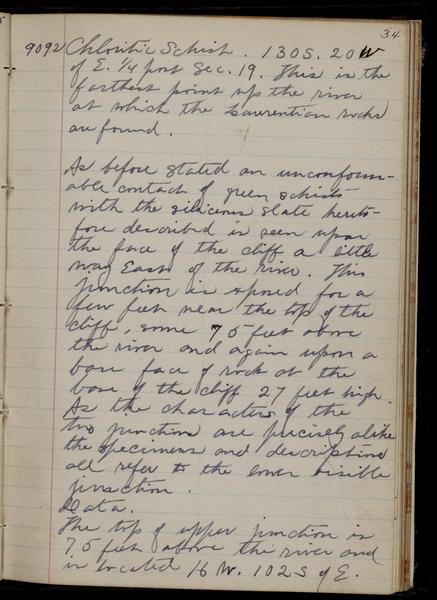 34
9092 Chloritic Schist. 130 S. 20 W
of E. 1/4 post Sec. 19. This is the
farthest point up the river
at which the Laurentian rocks
are found.
As before stated an unconform-
able contact of green schists
with the silicious slate hereto-
fore described is seen upon
the face of the cliff a little
way East of the river. This
junction is xposed for a
few feet near the top of the
cliff, some 75 feet above
the river and again upon a
bare face of rock at the
base of the cliff 27 feet high.
As the characters of the
two junctions are precisely alike
the specimens and descriptions
all refer to the lower visible
junction.
Data.
The top of upper junction is
75 feet above the river and
is located 16 W. 102 S of E.